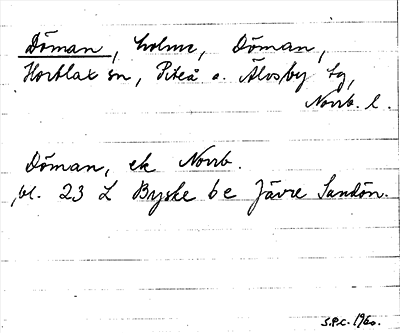 Döman, holme, Döman,
Hortlax sn, Piteå o. Älvsby tg,
Norrb. l.
Döman, ek Norrb.
bl. 23 L Byske 6 e Jävre Sandön.
S.P.C. 1960.